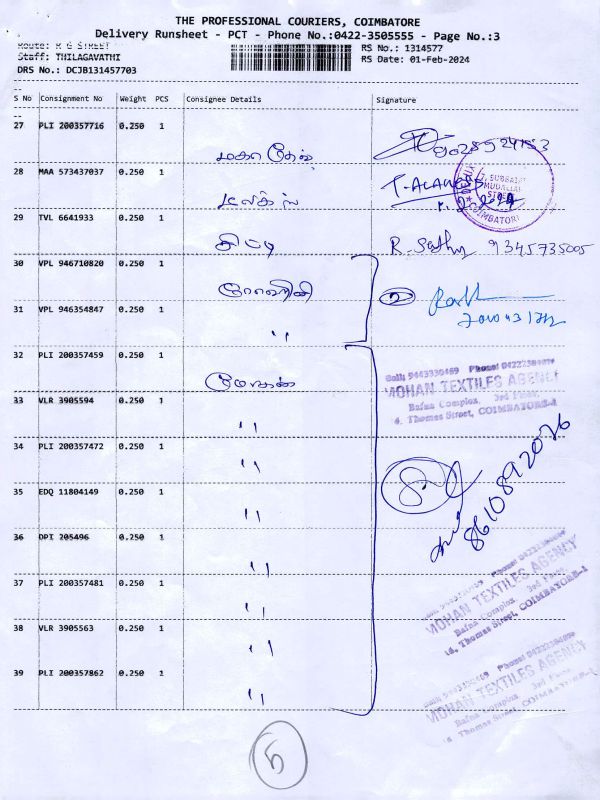 THE PROFESSIONAL COURIERS, COIMBATORE
Delivery Runsheet - PCT - Phone No.:0422-3505555 - Page No.:3
Route: R G STREET
RS No.: 1314577
Staff: THILAGAVATHI
RS Date: 01-Feb-2024
DRS No.: DCJB131457703
S No Consignment No Weight PCS Consignee Details Signature
27 PLI 200357716 0.250 1
28 MAA 573437037 0.250 1
29 TVL 6641933 0.250 1
R. Sathy 9345735005
30 VPL 946710820 0.250 1
31 VPL 946354847 0.250 1 "
32 PLI 200357459 0.250 1
MOHAN TEXTILES AGENCY
Bafna Complex, 3rd Floor,
Thomas Street, COIMBATORE-1
33 VLR 3905594 0.250 1 "
34 PLI 200357472 0.250 1 "
8610892026
35 EDQ 11804149 0.250 1 "
36 DPI 205496 0.250 1 "
37 PLI 200357481 0.250 1 "
MOHAN TEXTILES AGENCY
Bafna Complex 3rd Floor,
Thomas Street, COIMBATORE-1
38 VLR 3905563 0.250 1 "
39 PLI 200357862 0.250 1 "
MOHAN TEXTILES AGENCY
Bafna Complex
Thomas Street, COIMBATORE
5